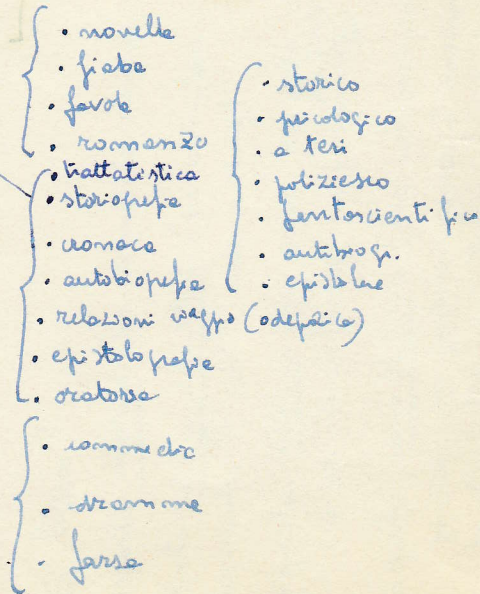 • novella
• fiaba
• favola
• romanzo
• storico
• psicologico
• a tesi
• poliziesco
• fantascientifico
• autobiogr.
• epistolare
• trattatistica
• storiografia
• cronaca
• autobiografia
• relazioni viaggio (odeporica)
• epistolografia
• oratoria
• commedia
• dramma
• farsa